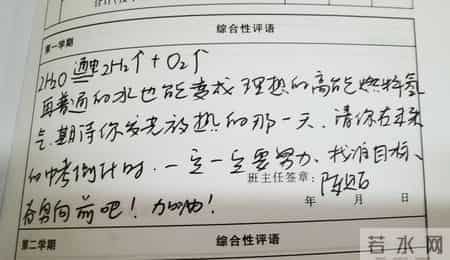 第一学期
综合性评语
2H₂O 通电 2H₂↑ + O₂↑
再普通的水也能变成理想的高能燃料氢
气,期待你发光放热的那一天。请你在未来
的中考倒计时,一定一定要努力、找准目标、
奋勇向前吧!加油!
班主任签章:陈
年 月 日
第二学期
综合性评语
若水网